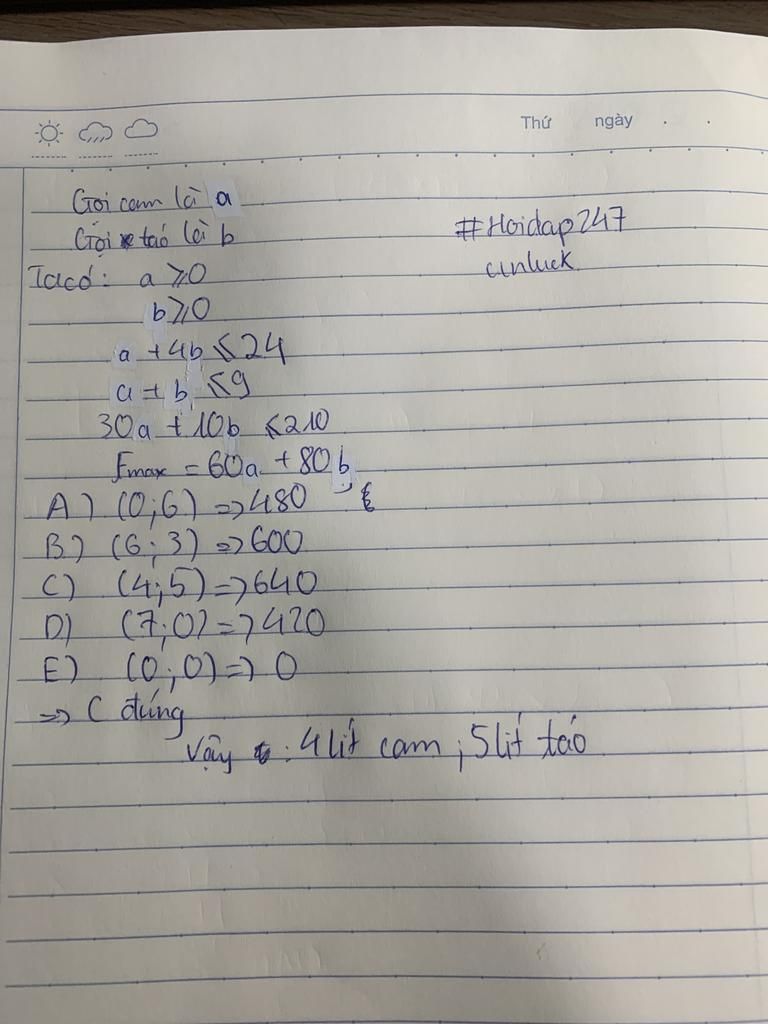 Thứ ngày
Gọi cam là a
Gọi táo là b
#Hoidap247
Ta có: a ⩾ 0
b ⩾ 0
a + 4b ⩽ 24
a + b ⩽ 9
30a + 10b ⩽ 210
Fmax = 60a + 80b
A) (0;6) => 480
B) (6;3) => 600
C) (4;5) => 640
D) (7;0) => 420
E) (0;0) => 0
=> C đúng
Vậy : 4 lít cam ; 5 lít táo